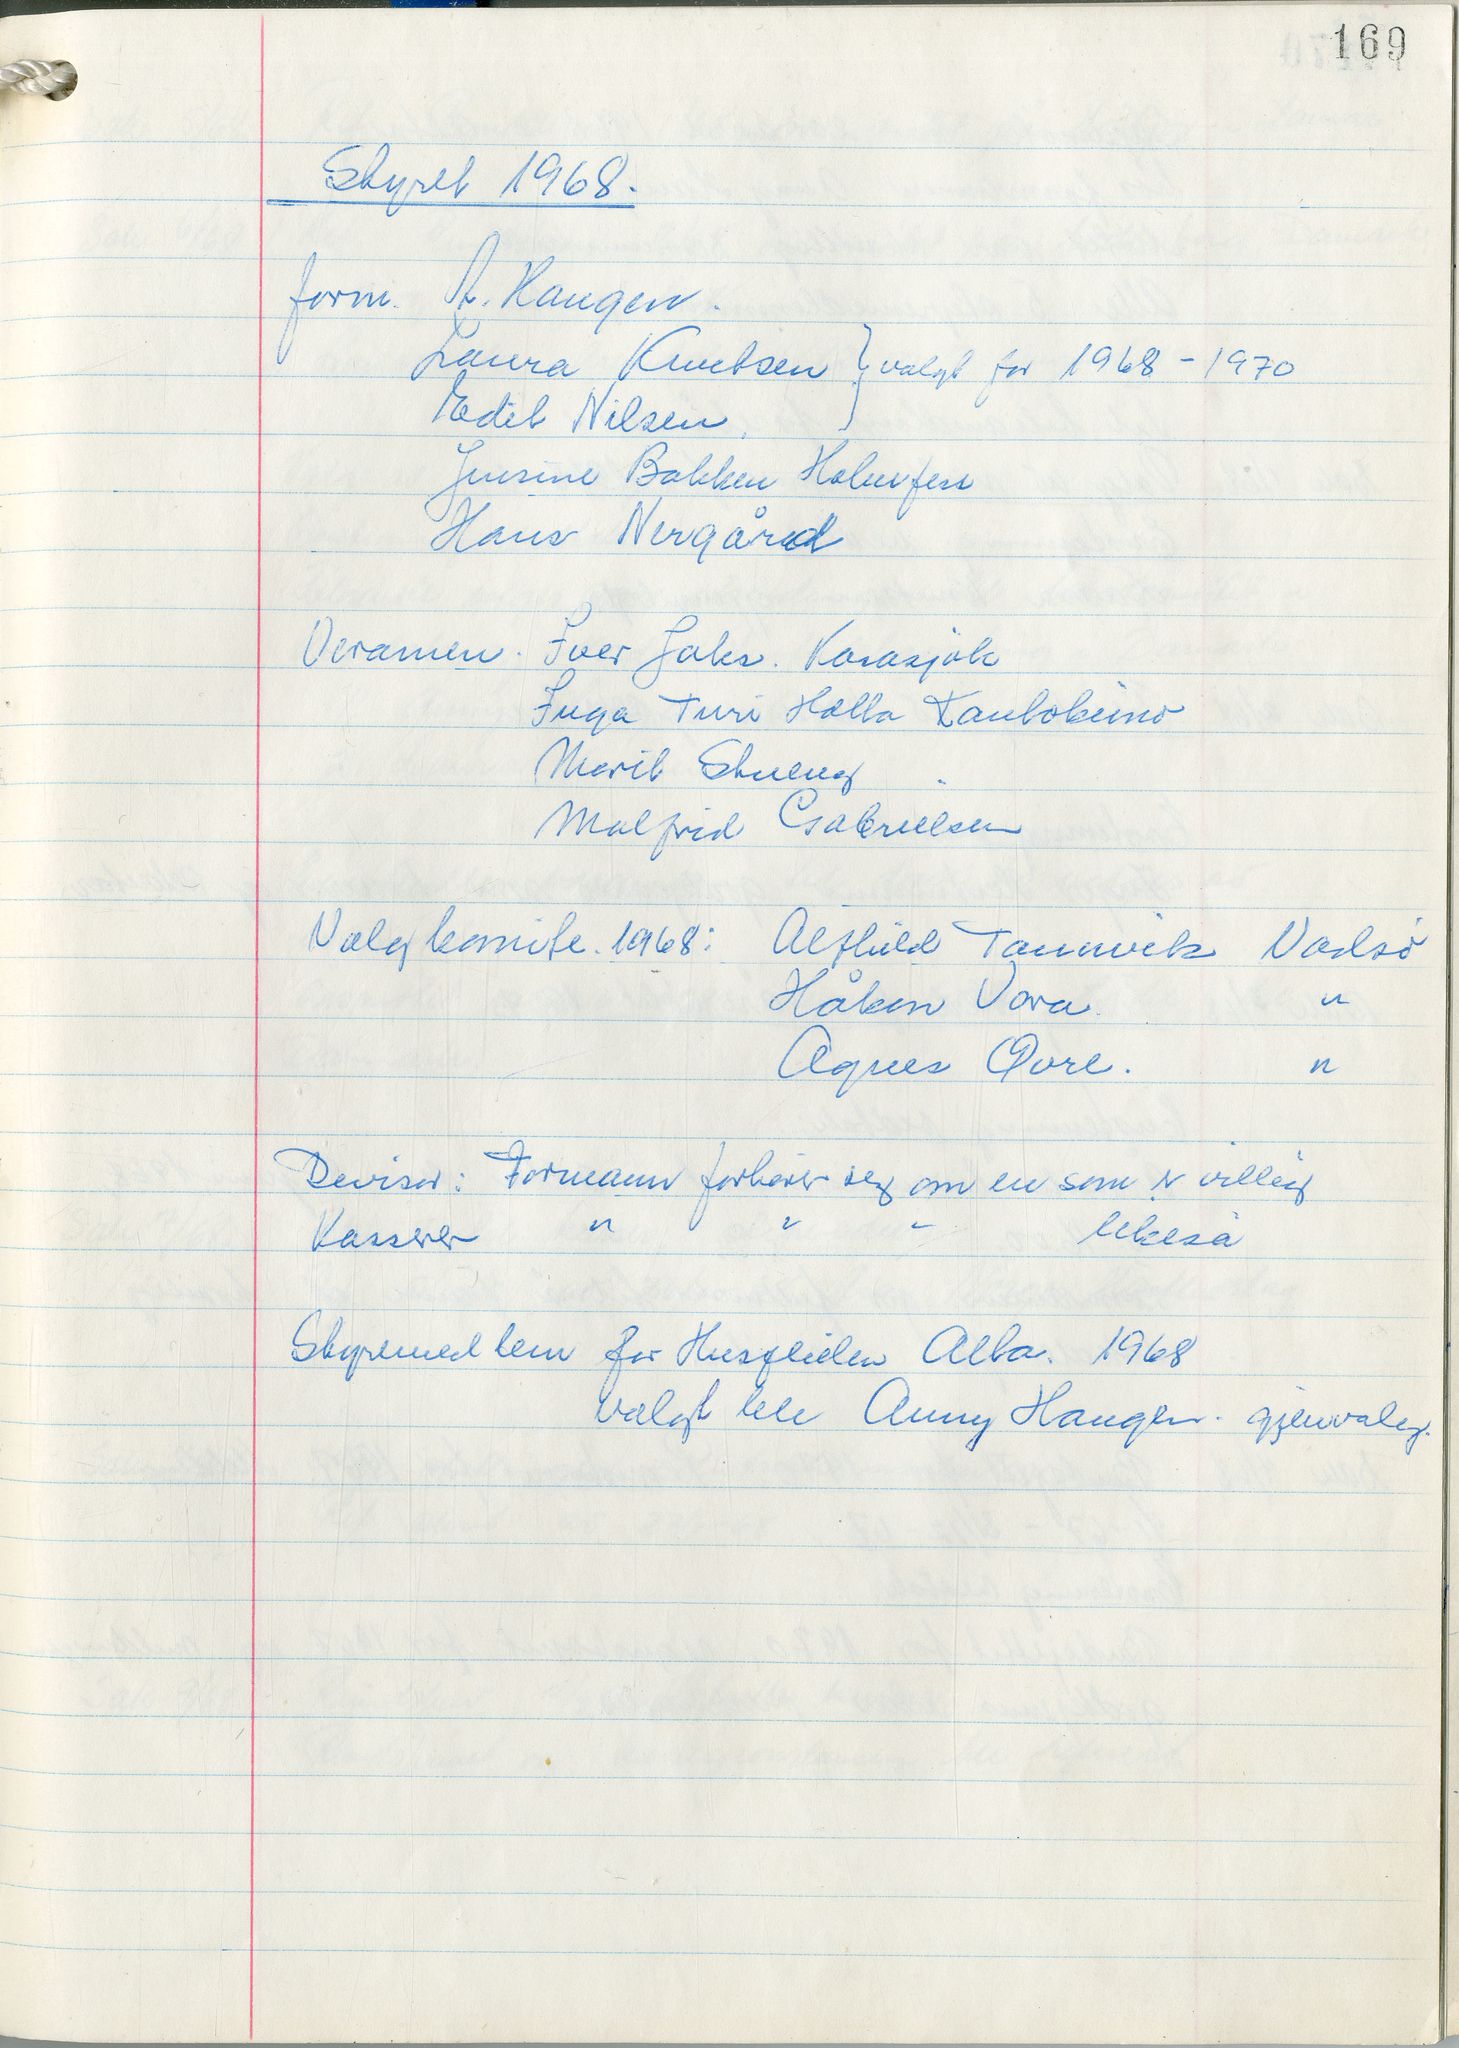 169
Styret 1968.
form. A. Haugen.
Laura Knutsen } valgt for 1968-1970
Edit Nilsen
Jensine Bakken
Hans Nergård
Varamen. Iver Jaks. Karasjok
Inga Turi Hætta Kautokeino
Marit Stueng
Malfrid Gabrielsen
Valgkomite. 1968: Alfhild Tannvik Vadsö
Håkon Vara. "
Agnes Qvre. "
Revisor: Formann forhörer seg om en som er villig
Kasserer " " " likeså
Styremedlem for Husfliden Alta. 1968
valgt ble Anny Haugen. gjenvalg.